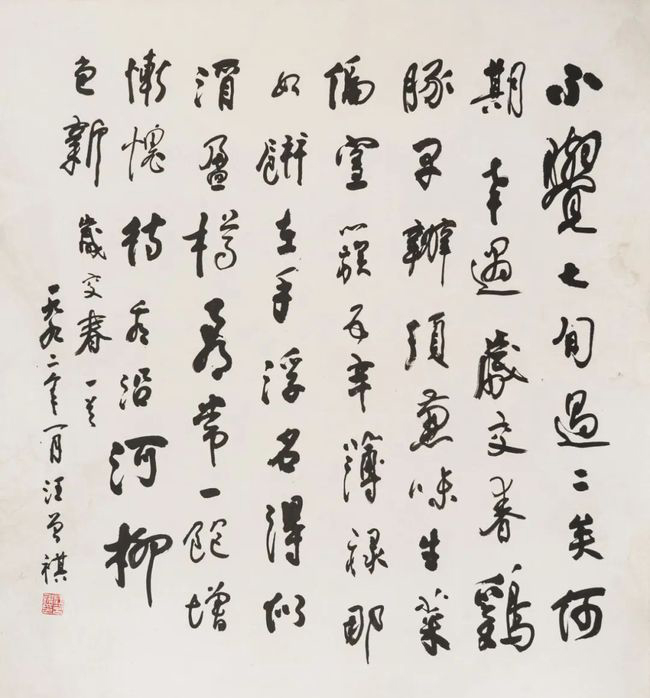 不覺七旬過二矣何
期幸遇歲交春鷄
豚早辦須兼味生菜
偏宜簇五辛薄祿那
如餅在手浮名得似
盈樽尋常一飽增
慚愧待看沿河柳
色新 歲交春一首
一九九二年一月汪曾祺